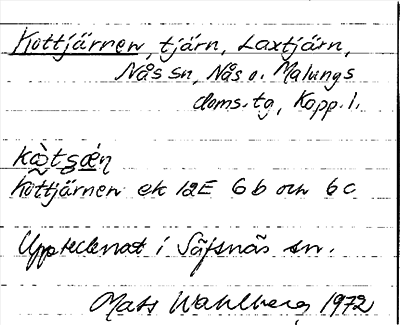 Kottjärnen, tjärn, Laxtjärn,
Nås sn, Nås o. Malungs
doms. tg, Kopp. l.
Kottjärnen ek 12E 6b och 6c
Upptecknat i Säfsnäs sn.
Mats Wahlberg 1972